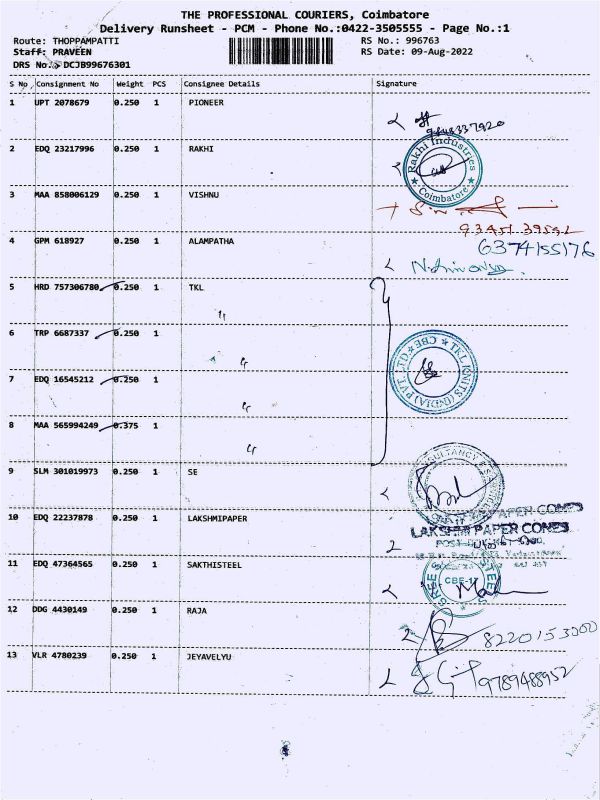 THE PROFESSIONAL COURIERS, Coimbatore
Delivery Runsheet - PCM - Phone No.:0422-3505555 - Page No.:1
Route: THOPPAMPATTI RS No.: 996763
Staff: PRAVEEN RS Date: 09-Aug-2022
DRS No.: DCJB99676301
S No Consignment No Weight PCS Consignee Details Signature
1 UPT 2078679 0.250 1 PIONEER
2 EDQ 23217996 0.250 1 RAKHI
Rakhi Industries
Coimbatore
3 MAA 858006129 0.250 1 VISHNU
93451 39592
4 GPM 618927 0.250 1 ALAMPATHA
6374155176
5 HRD 757306780 0.250 1 TKL
6 TRP 6687337 0.250 1
TKL KNITS (INDIA) PVT. LTD CBE
7 EDQ 16545212 0.250 1
8 MAA 565994249 0.375 1
9 SLM 301019973 0.250 1 SE
10 EDQ 22237878 0.250 1 LAKSHMIPAPER
PAPER CONES
LAKSHMI PAPER CONES
11 EDQ 47364565 0.250 1 SAKTHISTEEL
SREE STEELS
CBE-17
12 DDG 4430149 0.250 1 RAJA
8220153000
13 VLR 4780239 0.250 1 JEYAVELYU
9789488952